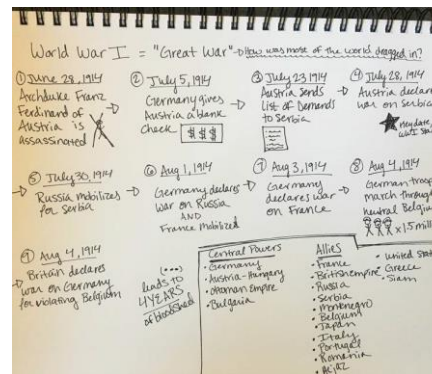 World War I = "Great War" → How was most of the world dragged in?
① June 28, 1914
Archduke Franz
Ferdinand of
Austria is
assassinated
② July 5, 1914
Germany gives
Austria a blank
check
$ $ $
③ July 23 1914
Austria sends
List of Demands
to Serbia
④ July 28, 1914
Austria declare
war on Serbia
key date,
⑤ July 30, 1914
Russia mobilizes
for Serbia
⑥ Aug 1, 1914
Germany declares
war on Russia
AND
France mobilized
⑦ Aug 3, 1914
Germany
declares war
on France
⑧ Aug 4, 1914
German troop
march through
neutral Belgiu
x 1.5 mill
⑨ Aug 4, 1914
Britain declares
war on Germany
for violating Belgium
(•••)
leads to
4 YEARS
of bloodshed
Central Powers
• Germany
• Austria-Hungary
• Ottoman Empire
• Bulgaria
Allies
• France
• British empire
• Russia
• Serbia
• Montenegro
• Belgium
• Japan
• Italy
• Portugal
• Romania
• Hijaz
• United Stat
• Greece
• Siam